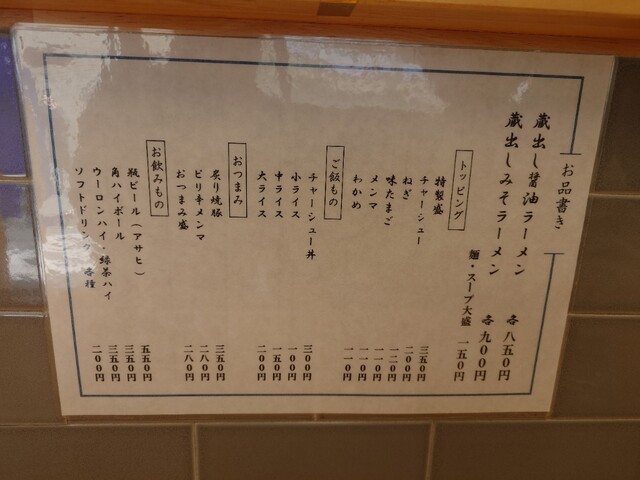 お品書き
蔵出し醤油ラーメン 各八五〇円
蔵出しみそラーメン 各九〇〇円
麺・スープ大盛 一五〇円
トッピング
特製盛 三五〇円
チャーシュー 二〇〇円
ねぎ 一二〇円
味たまご 一一〇円
メンマ 一一〇円
わかめ 一一〇円
ご飯もの
チャーシュー丼 三〇〇円
小ライス 一〇〇円
中ライス 一五〇円
大ライス 二〇〇円
おつまみ
炙り焼豚 三五〇円
ピリ辛メンマ 二八〇円
おつまみ盛 二八〇円
お飲みもの
瓶ビール（アサヒ） 五五〇円
角ハイボール 三五〇円
ウーロンハイ・緑茶ハイ 三五〇円
ソフトドリンク各種 二〇〇円